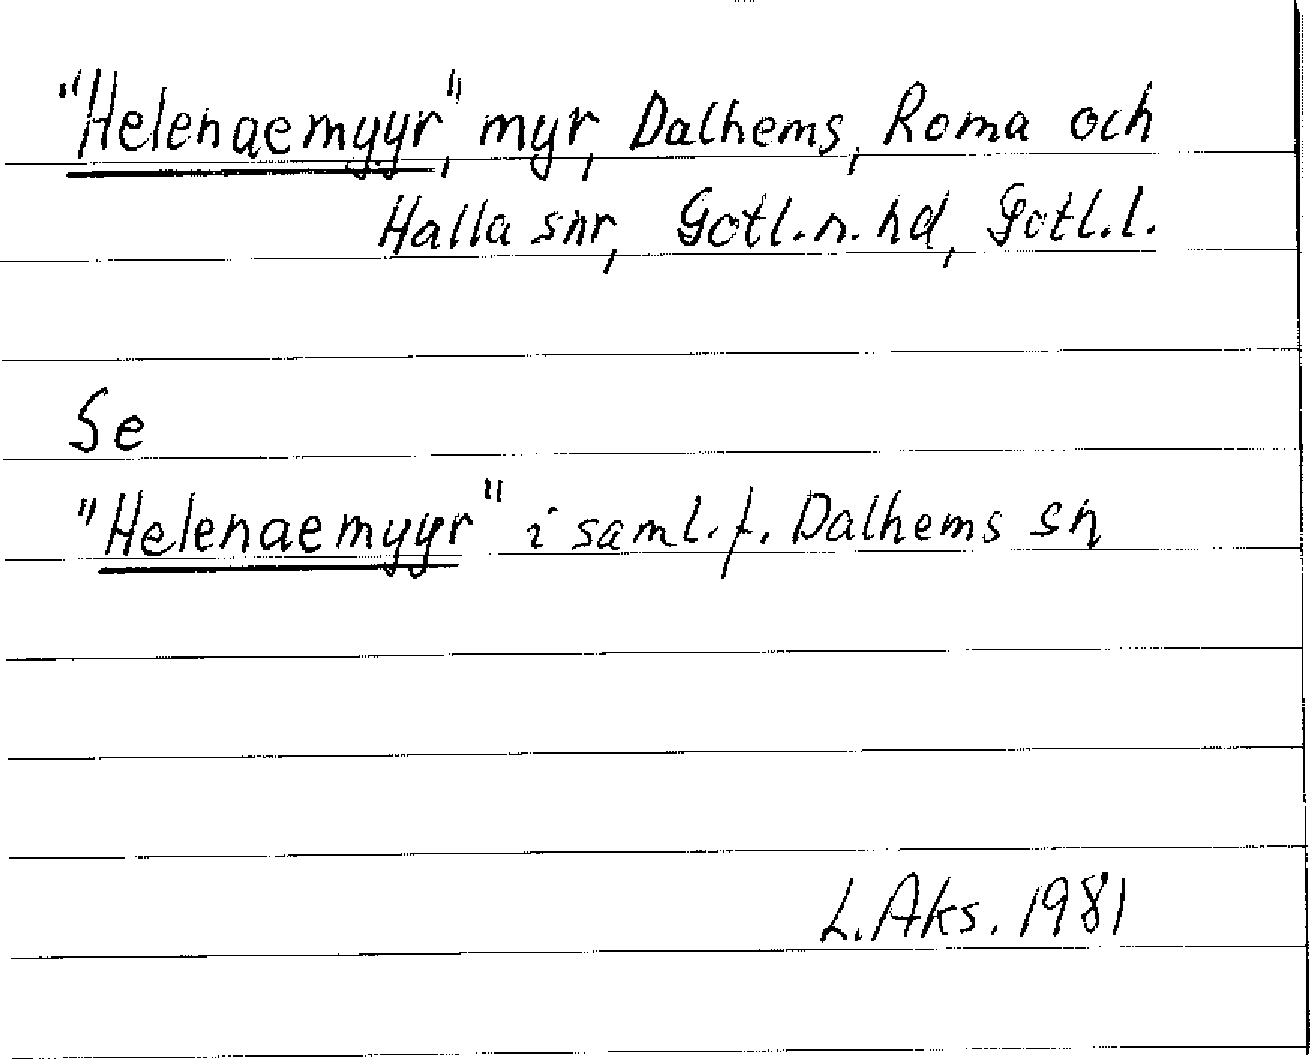 "Helenaemyyr", myr, Dalhems, Roma och
Halla snr, Gotl.n.hd, Gotl.l.
Se
"Helenaemyyr" i saml.f. Dalhems sn
L.Aks. 1981